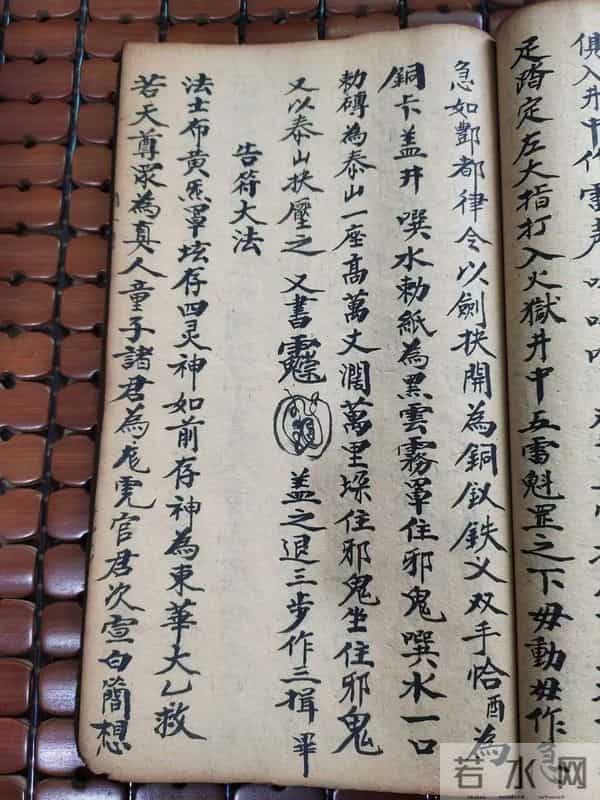 入井中作雷声
足踏定左大指打入火獄井中五雷魁罡之下毋動毋作
急如酆都律令以劍抉開為銅釵鉄义双手恰酉為
銅卡盖井 噀水勅紙為黑雲霧罩住邪鬼噀水一口
勅磚為泰山一座高萬丈濶萬里垛住邪鬼坐住邪鬼
又以泰山抉壓之 又書 盖之退三步作三揖畢
告符大法
法士布黄炁罩坛存四灵神如前存神為東華大乙救
若天尊眾為真人童子諸君為龙虎官君次宣白簡想
若水网